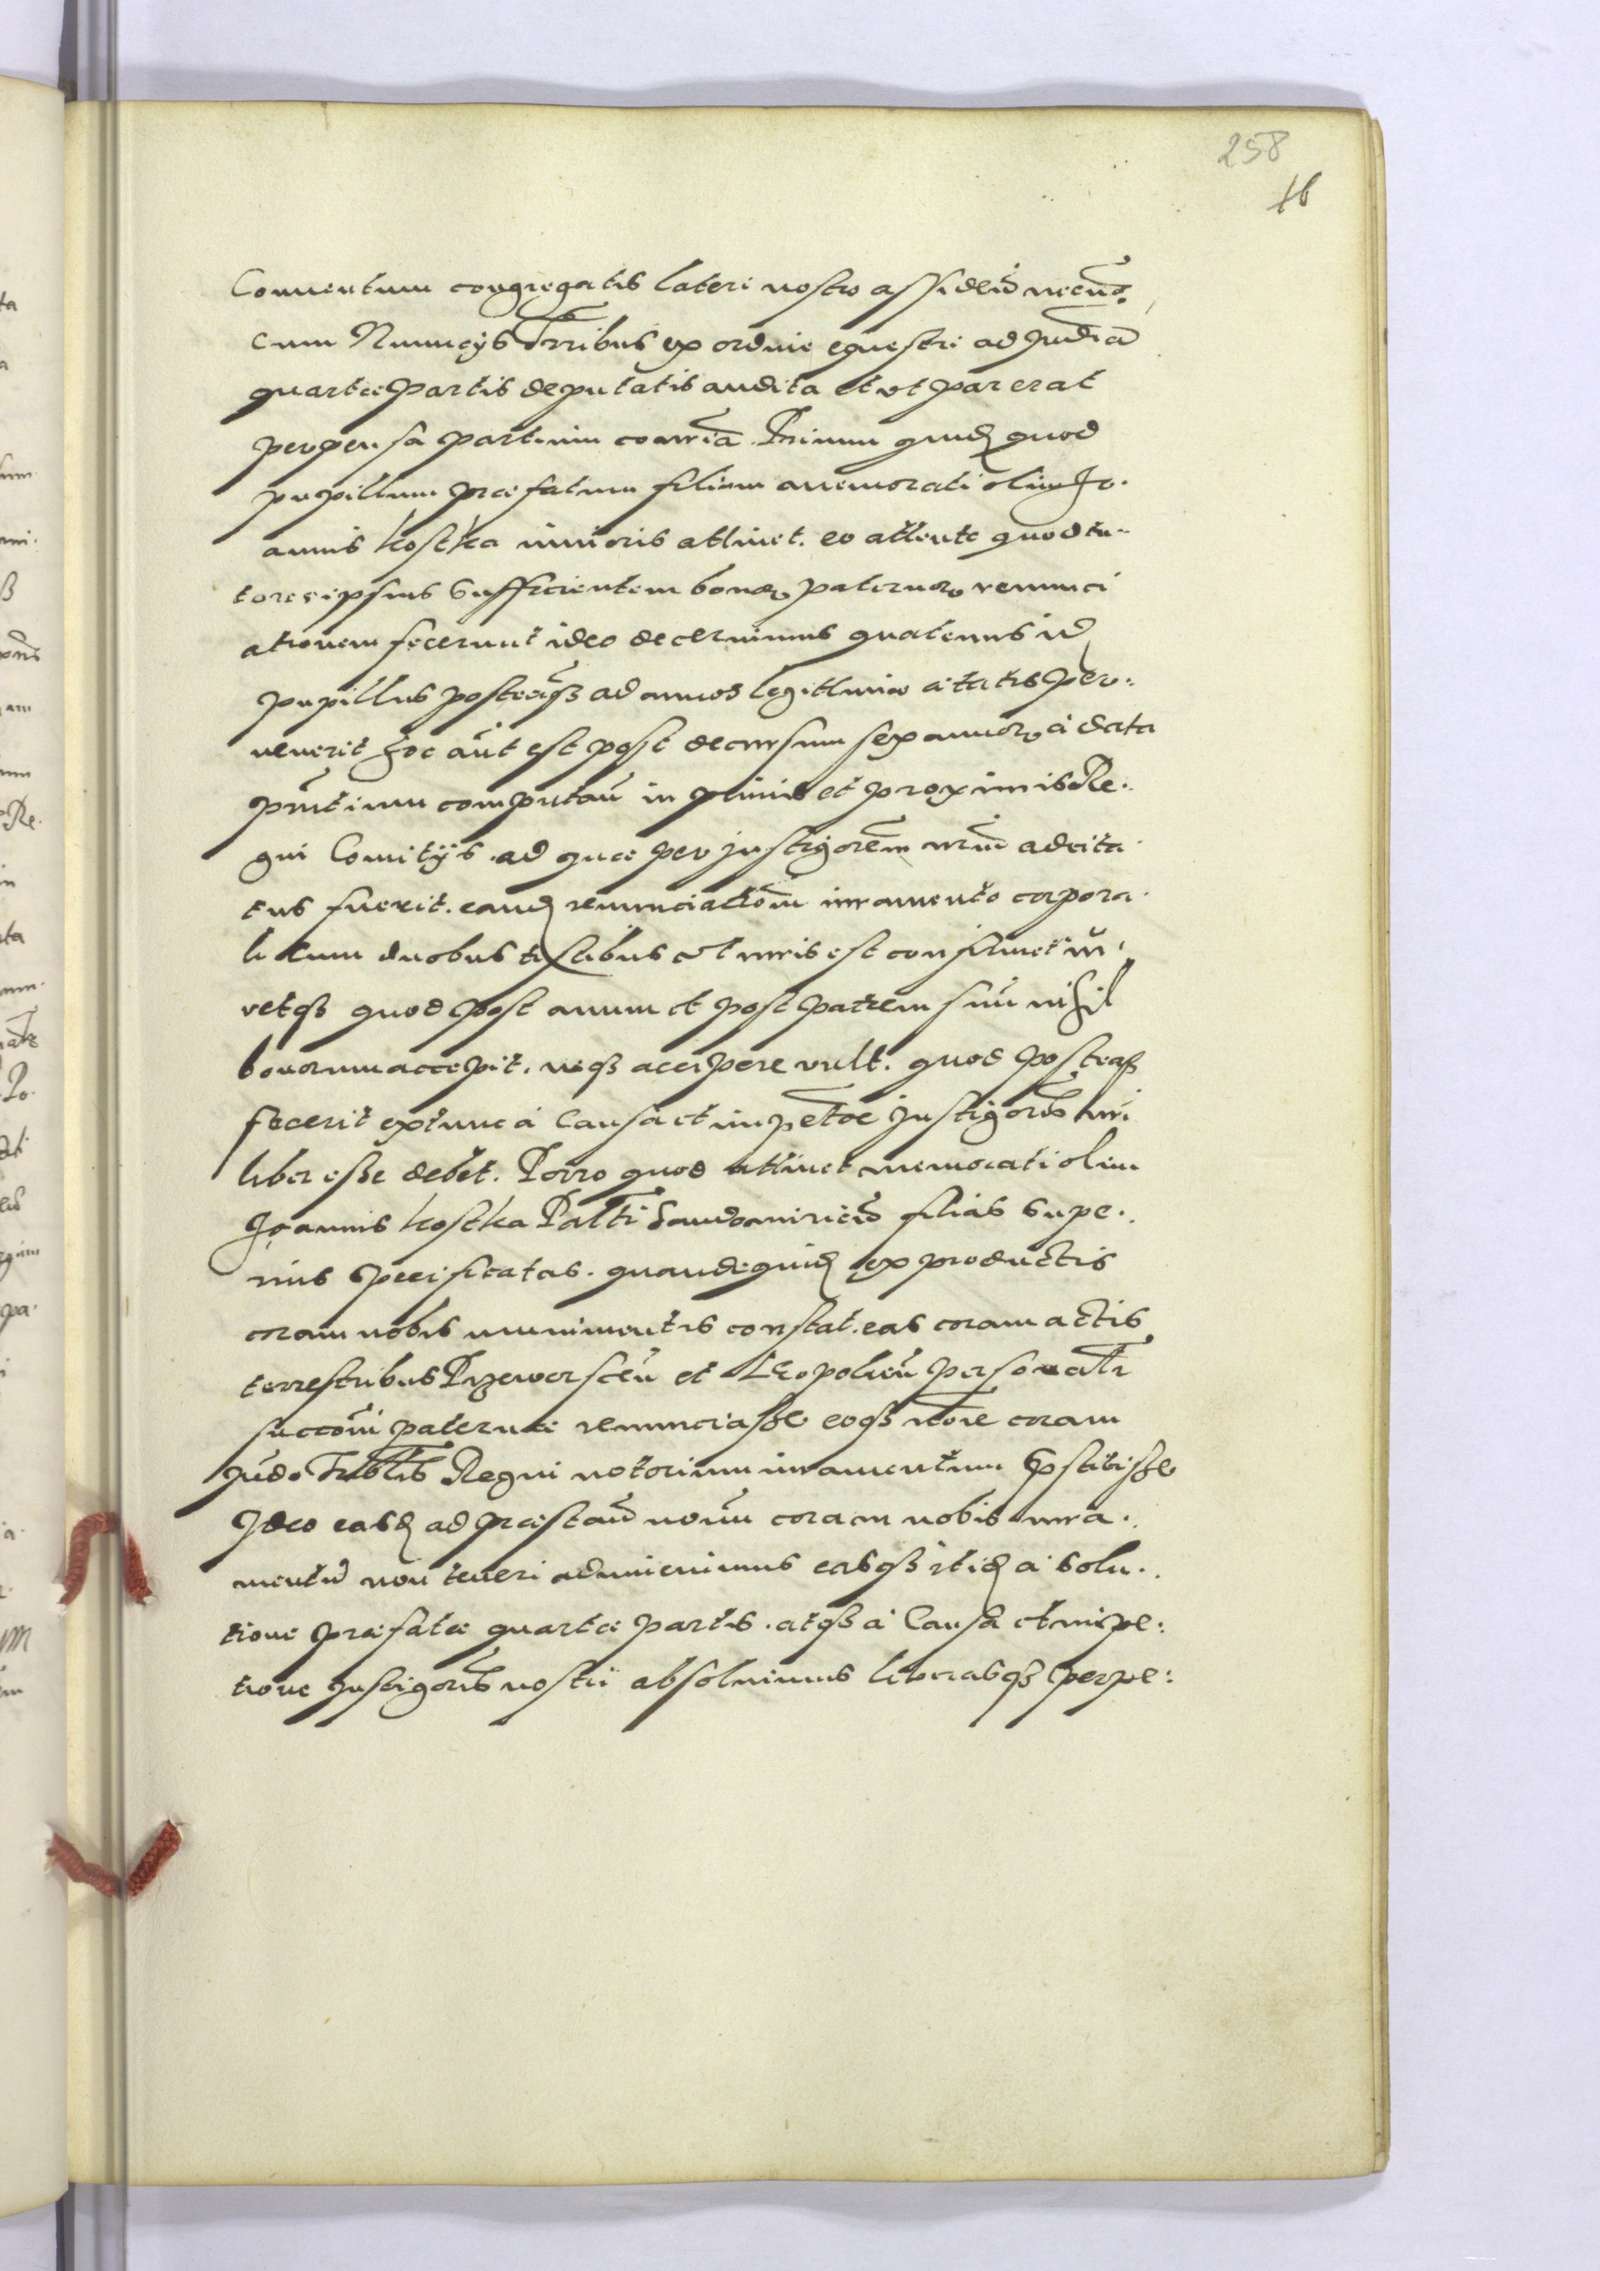 258
16
Conventum congregatis lateri nostro assideñ necnõ
cum Nuncijs Trribus ex ordine equestri ad Judicia
quartæ Partis deputatis audita et ut par erat
perpensa partium contria. Primum quidē quod
pupillum præfatum filium avemorati olim Jo.
annis Kostka iunioris attinet. eo attento quod tu-
tores ipsius sufficientem bonor. paternor. renunci
ationem fecerunt ideo decernimus quatenus id
pupillus posteaqꝫ ad annos legitimæ ætatis per:
venerit hoc aũt est post decursum sex annor. à data
pñtium computañ in primis et proximis Re.
gni Comitijs. ad quæ per Justigorem nrm adcita
tus fuerit. eandē renunciatiõm iuramento corpora.
li cum duobus testibus ut iuris est confirmet iu.
retqꝫ quod post avum et post patrem suũ nihil
bonorum accepit. neqꝫ accipere vult. quod posteaqꝫ
fecerit extunc à Causa et impetõe Justigoris nri
liber esse debet. Porro quod attinet memorati olim
Joannis Kostka Palti Sandomirieñ filias supe.
rius specificatas. quandoquidē ex productis
coram nobis munimentis constat. eas coram actis
terrestribus Przeworsceñ et Leopolieñ personalr
succõni paternæ renunciasse eoqꝫ nõie coram
Judō Tribtlis Regni notorium iuramentum pstitisse
Ideo easdē ad præstand novũ coram nobis iura.
mentũ non teneri adinvenimus easqꝫ itidē à solu.
tione præfatæ quartæ partis. atqꝫ à Causa et impe:
tione Justigoris nostri absolvimus liberasqꝫ perpe: